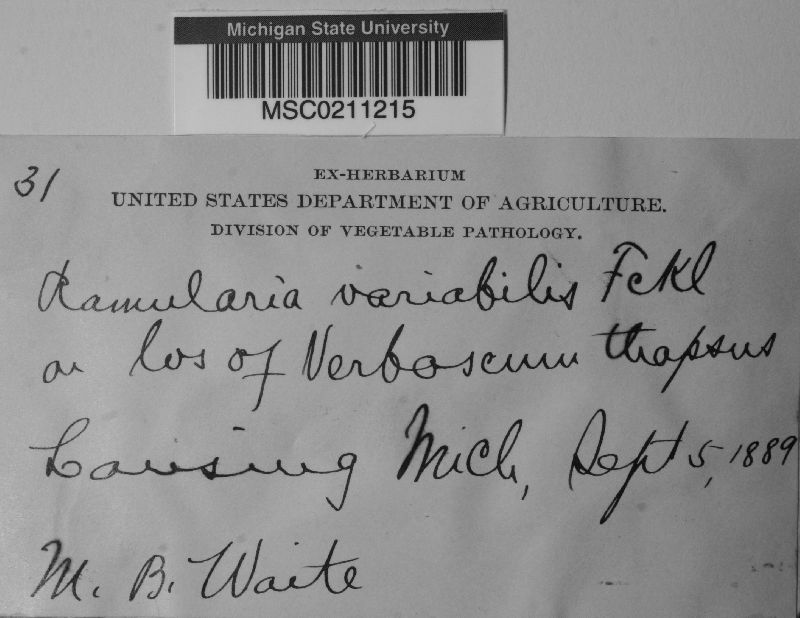 Michigan State University
MSC0211215
31
EX-HERBARIUM
UNITED STATES DEPARTMENT OF AGRICULTURE.
DIVISION OF VEGETABLE PATHOLOGY.
Ramularia variabilis Fckl
on lvs of Verbascum thapsus
Lansing Mich, Sept 5, 1889
M. B. Waite